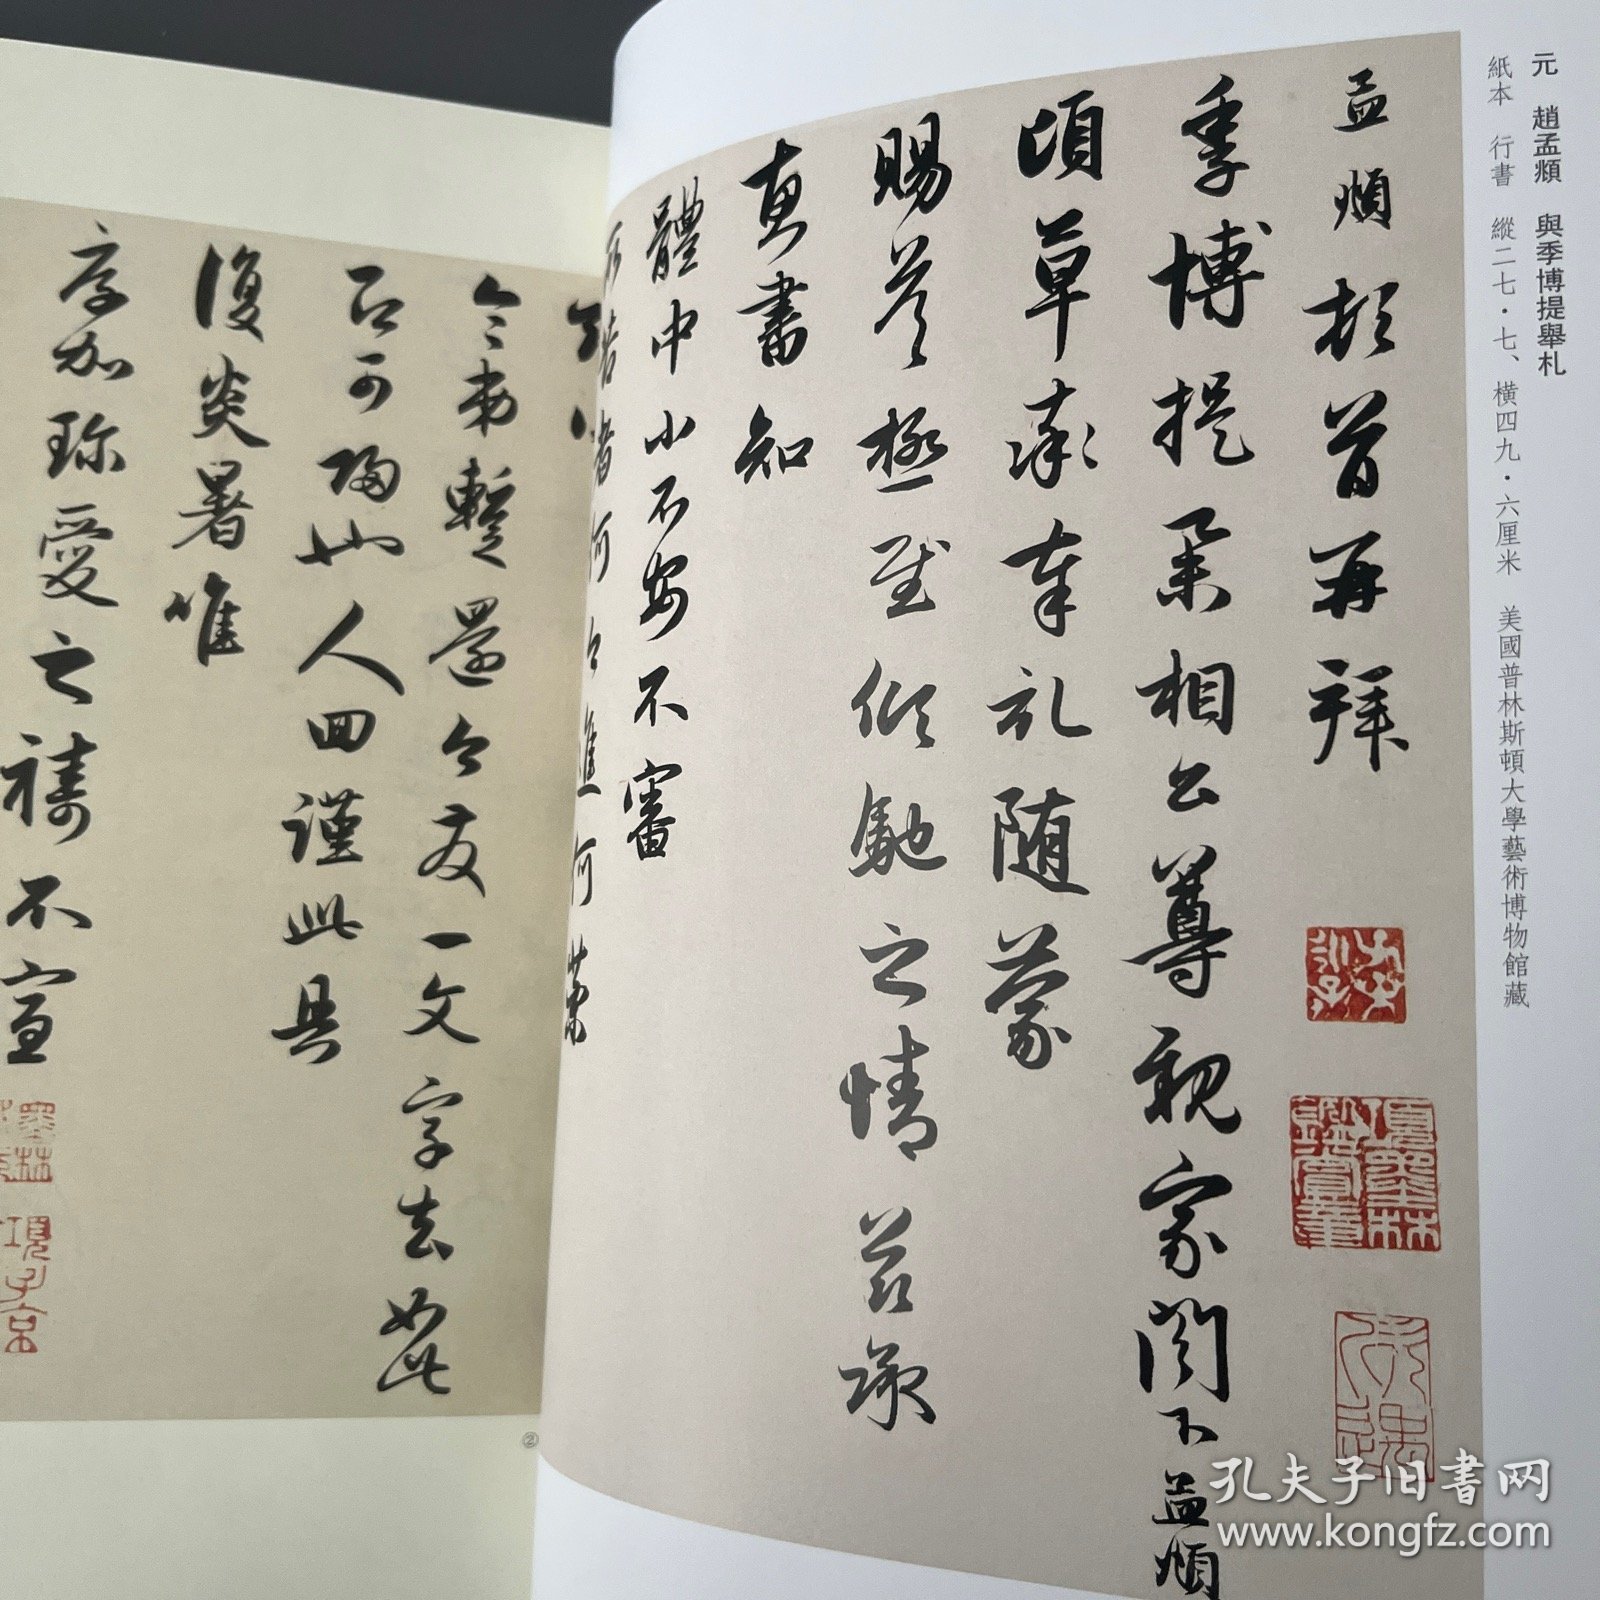 元　趙孟頫　與季博提舉札
紙本　行書　縱二七·七、橫四九·六厘米　美國普林斯頓大學藝術博物館藏
孟頫頓首再拜
季博提舉相公尊親家閣下孟頫
頃草率奉札隨蒙
賜答極至傾馳之情茲承
惠書知
體中小不安不審
所苦者何今進何藥
令弟暫還今友一文字去如此
即可歸也人回謹此具
復炎暑唯
厚加珍愛之禱不宣
項子京
②
孔夫子旧书网
www.kongfz.com